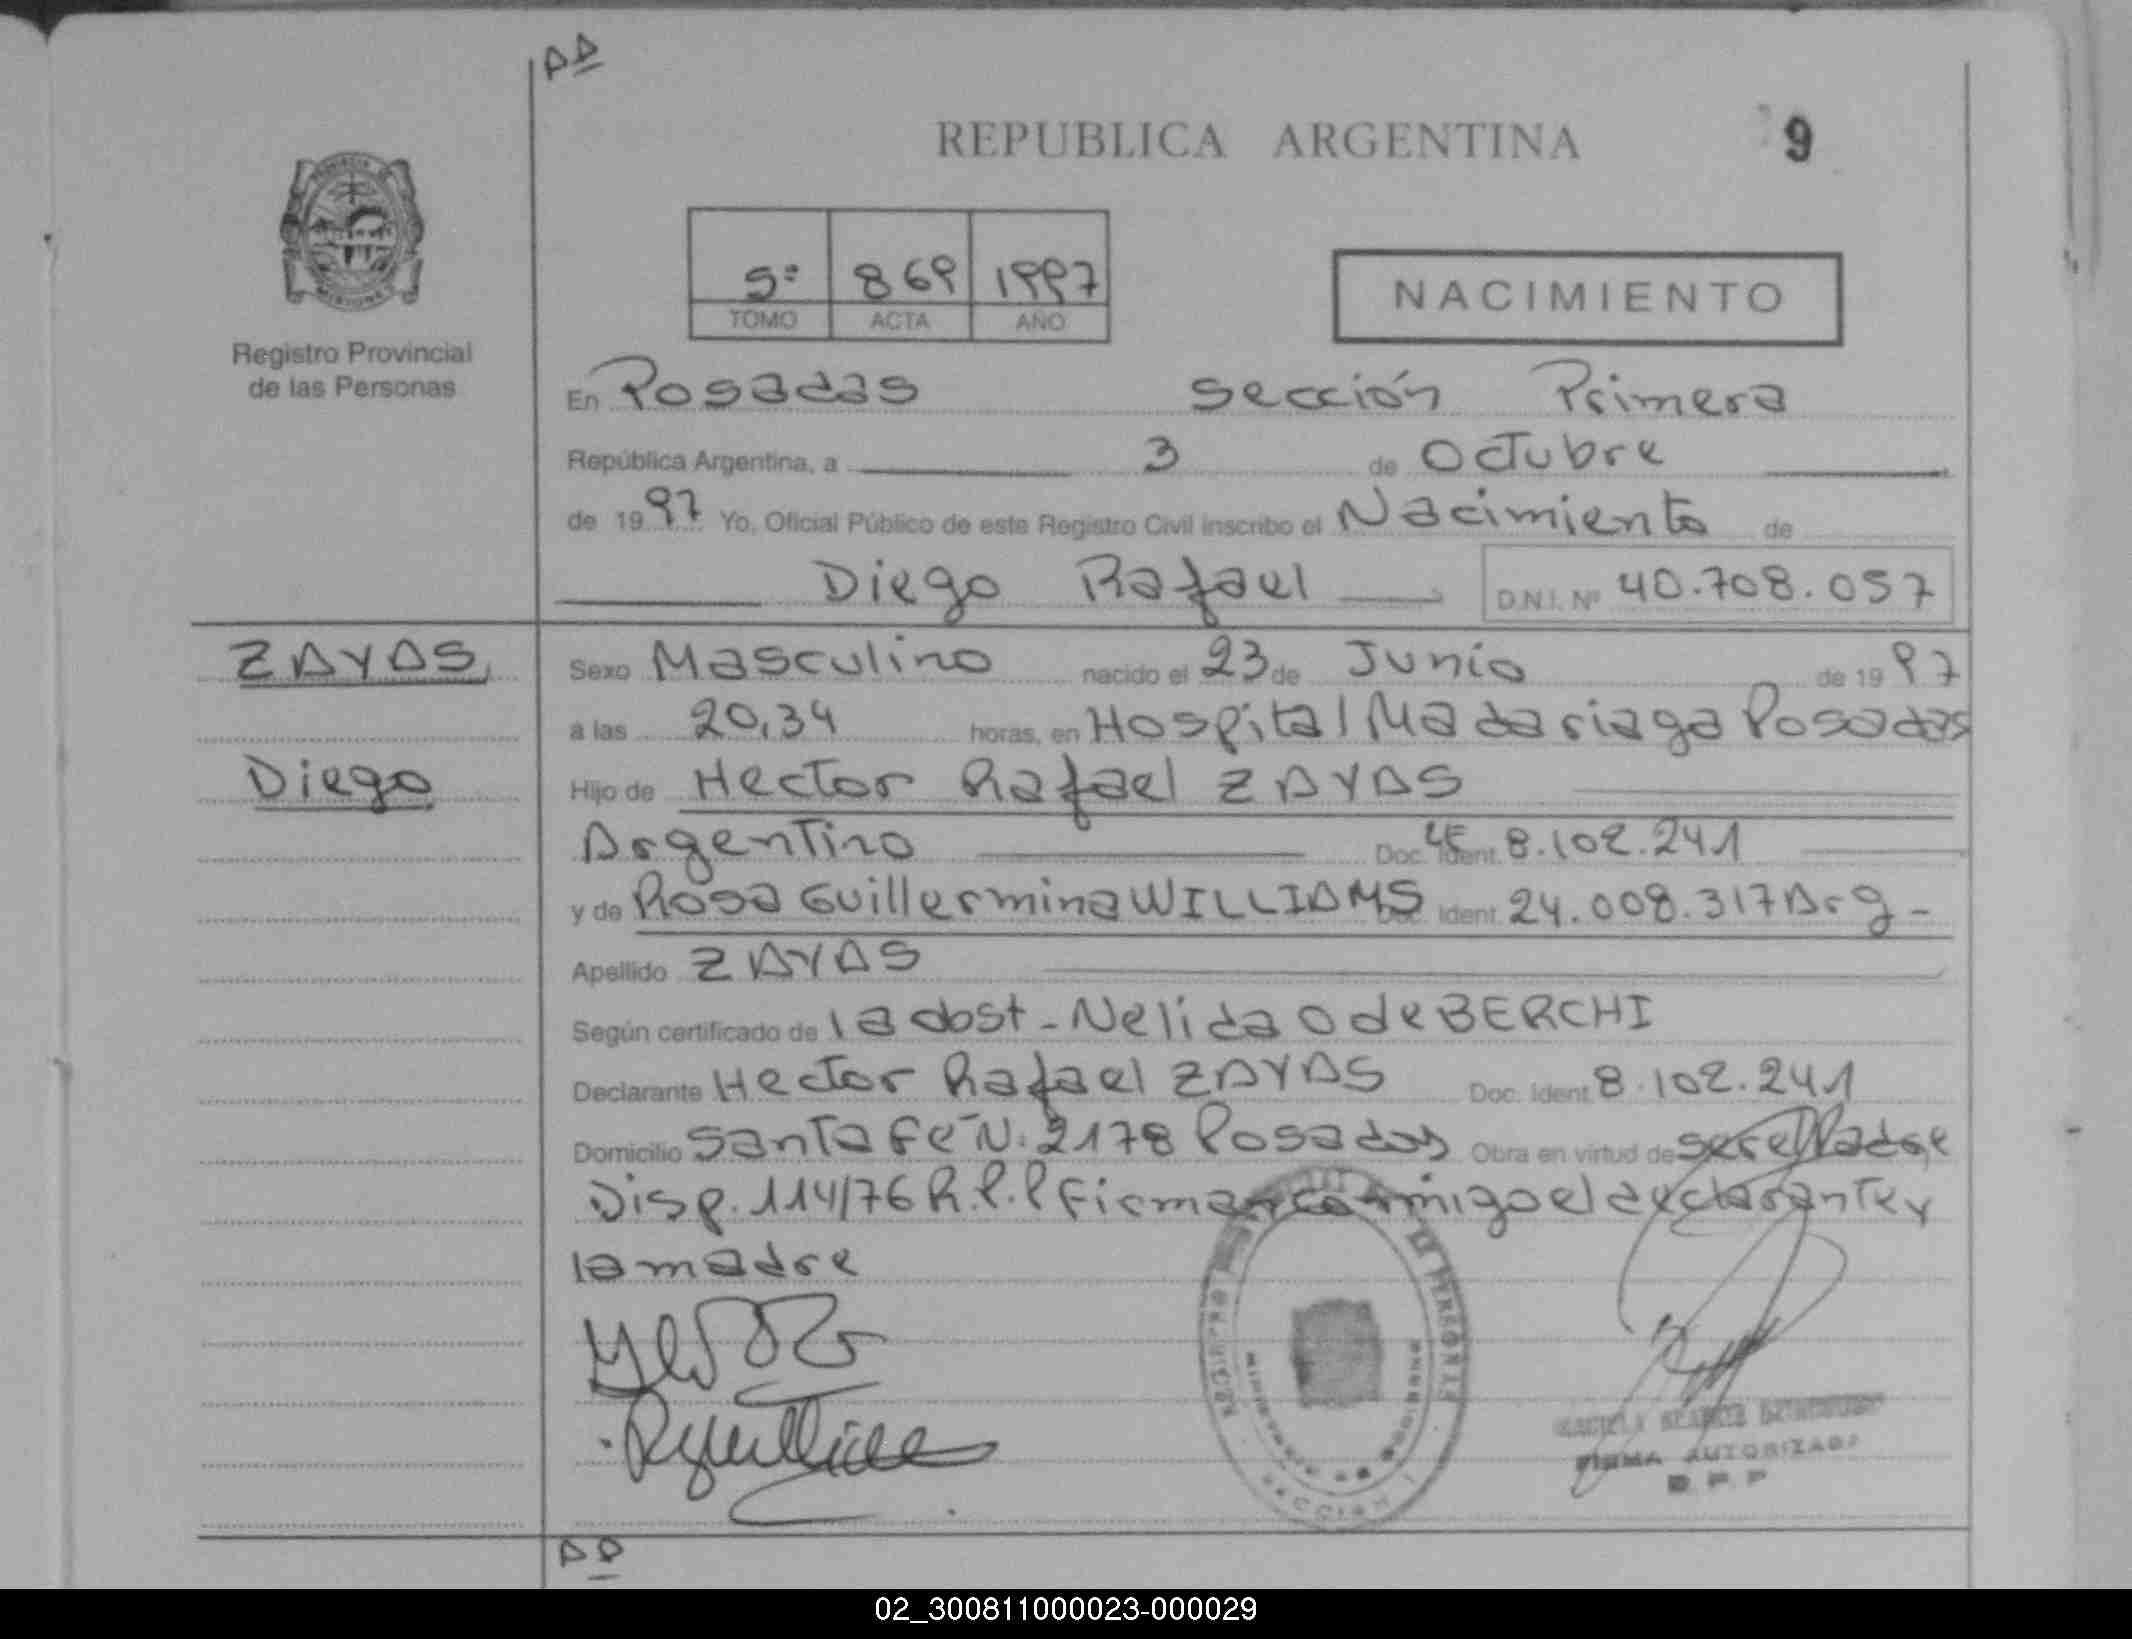 AA
REPUBLICA ARGENTINA 9
5º 869 1997
TOMO ACTA AÑO
NACIMIENTO
Registro Provincial
de las Personas
En Posadas Sección Primera
República Argentina, a 3 de Octubre
de 1997 Yo, Oficial Público de este Registro Civil inscribo el Nacimiento de
Diego Rafael D.N.I. Nº 40.708.057
ZAYAS,
Diego
Sexo Masculino nacido el 23 de Junio de 1997
a las 20,34 horas, en Hospital Madariaga Posadas
Hijo de Hector Rafael ZAYAS
Argentino Doc. Ident. LE 8.102.241
y de Rosa Guillermina WILLIAMS Doc. Ident. 24.008.317 Arg-
Apellido ZAYAS
Según certificado de la obst- Nelida O de BERCHI
Declarante Hector Rafael ZAYAS Doc. Ident. 8.102.241
Domicilio Santa Fe N. 2178 Posadas Obra en virtud de ser el Padre
Disp. 114/76 R.P.P Firman conmigo el declarante y
la madre
SECCION I
FIRMA AUTORIZADA
AA
02_300811000023-000029